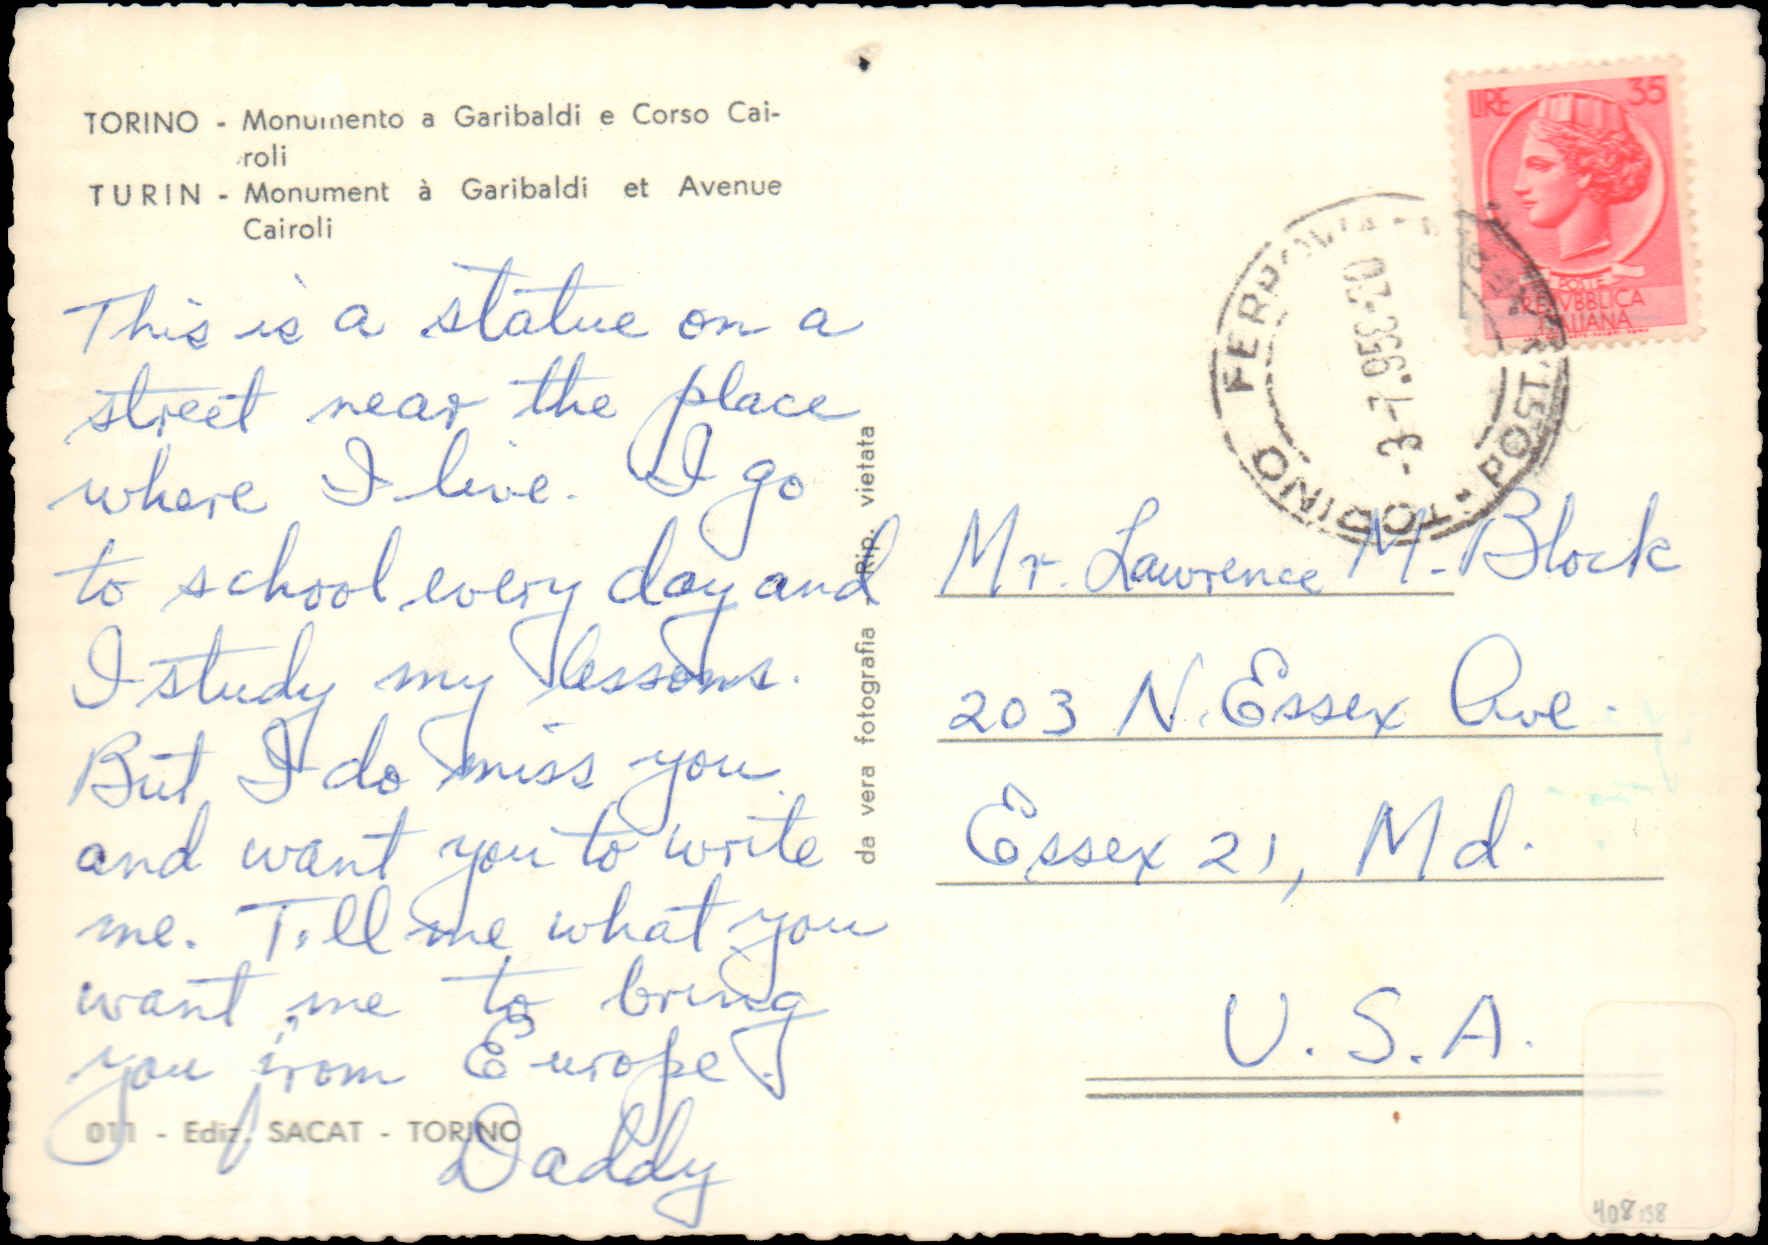 TORINO - Monumento a Garibaldi e Corso Cai-
roli
TURIN - Monument à Garibaldi et Avenue
Cairoli
This is a statue on a
street near the place
where I live. I go
to school every day and
I study my lessons.
But I do miss you
and want you to write
me. Tell me what you
want me to bring
you from Europe.
Daddy
011 - Ediz. SACAT - TORINO
da vera fotografia - Rip. vietata
LIRE 35
POSTE
REPVBBLICA
ITALIANA
TORINO FERROVIA
POST
-3-7.953-20
Mr. Lawrence M. Block
203 N. Essex Ave.
Essex 21, Md.
U.S.A.
408